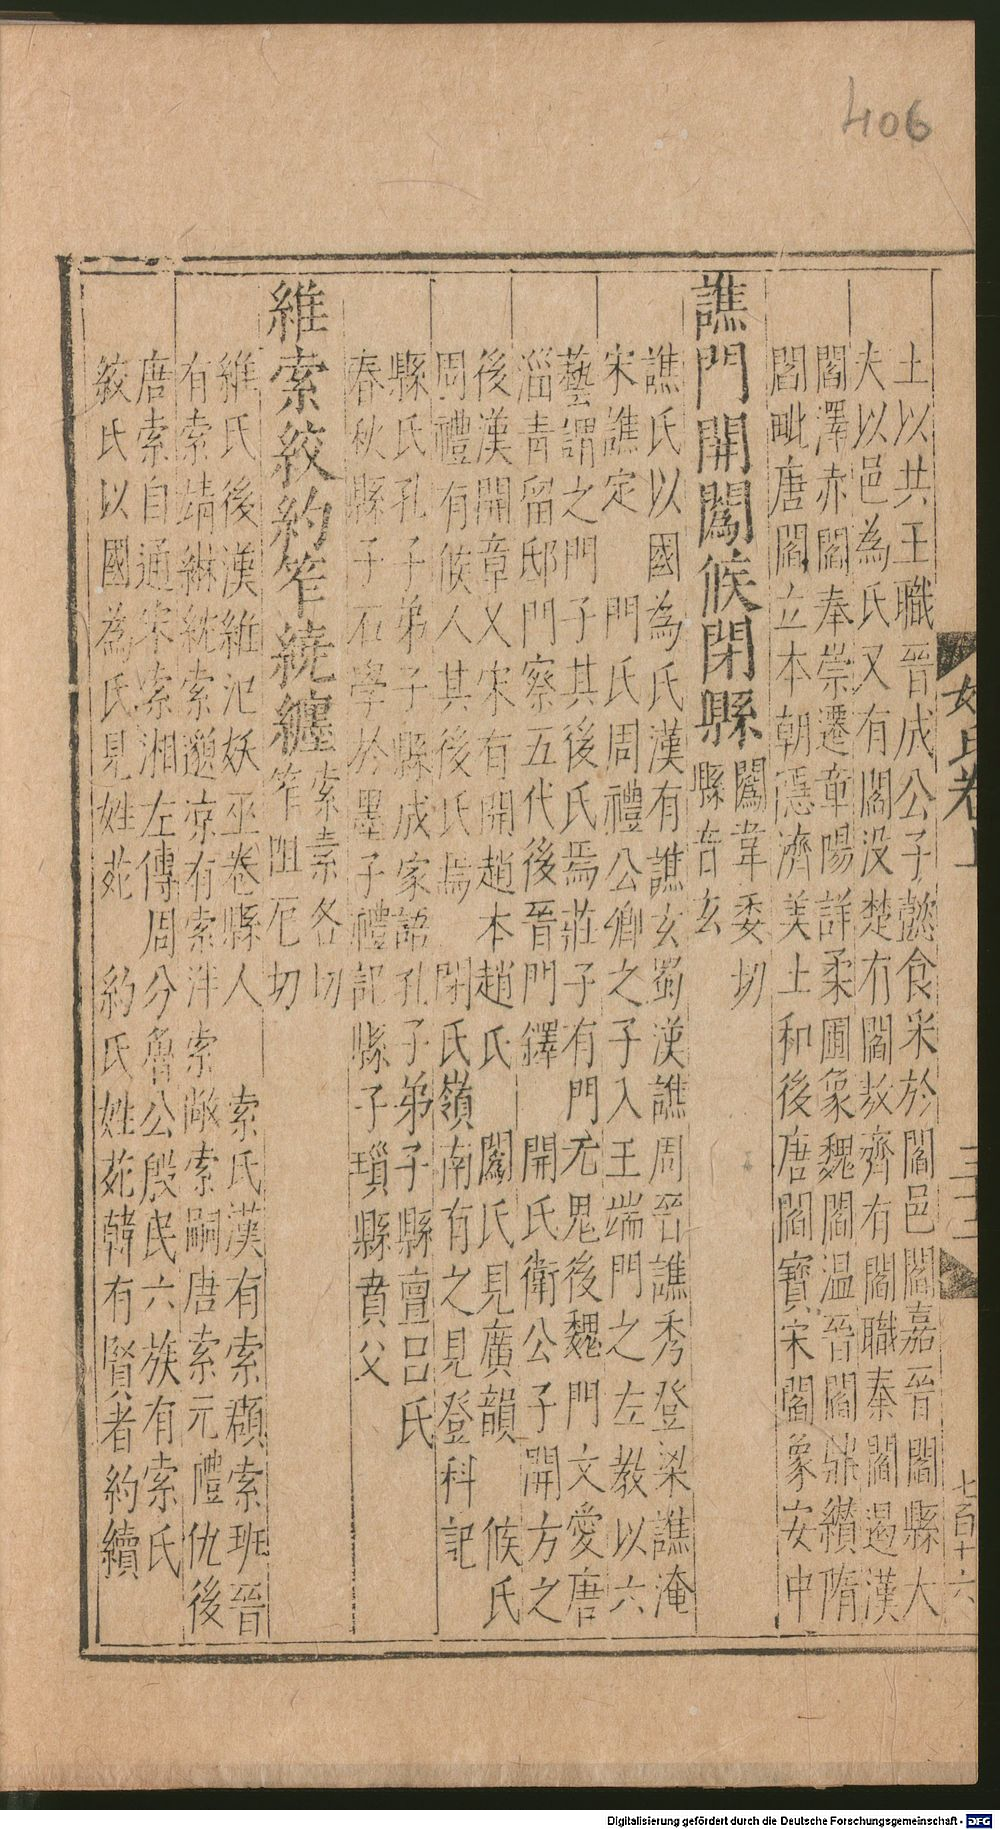 406
土以共王職晉成公子懿食采於閻邑閻嘉晉閻縣大
夫以邑為氏又有閻没楚有閻敖齊有閻職秦閻遏漢
閻澤赤閻奉崇遷章陽詳柔圃象魏閻温晉閻鼎纘隋
閻毗唐閻立本朝隱濟美士和後唐閻寶宋閻象安中
譙門開闖候閉縣
闖韋委切
縣音玄
譙氏以國為氏漢有譙玄蜀漢譙周晉譙秀登梁譙淹
宋譙定 門氏周禮公卿之子入王端門之左教以六
藝謂之門子其後氏焉莊子有門无鬼後魏門文愛唐
淄青留邸門察五代後晉門鐸 開氏衛公子開方之
後漢開章又宋有開趙本趙氏 闖氏見廣韻 候氏
周禮有候人其後氏焉 閉氏嶺南有之見登科記
縣氏孔子弟子縣成家語孔子弟子縣亶呂氏
春秋縣子石學於墨子禮記縣子瑣縣賁父
維索絞約笮繞纏
索素各切
笮阻厄切
維氏後漢維汜妖巫卷縣人 索氏漢有索頵索班晉
有索靖綝紞索邈涼有索泮索敞索嗣唐索元禮仇後
唐索自通宋索湘左傳周分魯公殷民六族有索氏
絞氏以國為氏見姓苑 約氏姓苑韓有賢者約續
姓氏卷上
三十二
七百十六
Digitalisierung gefördert durch die Deutsche Forschungsgemeinschaft - DFG